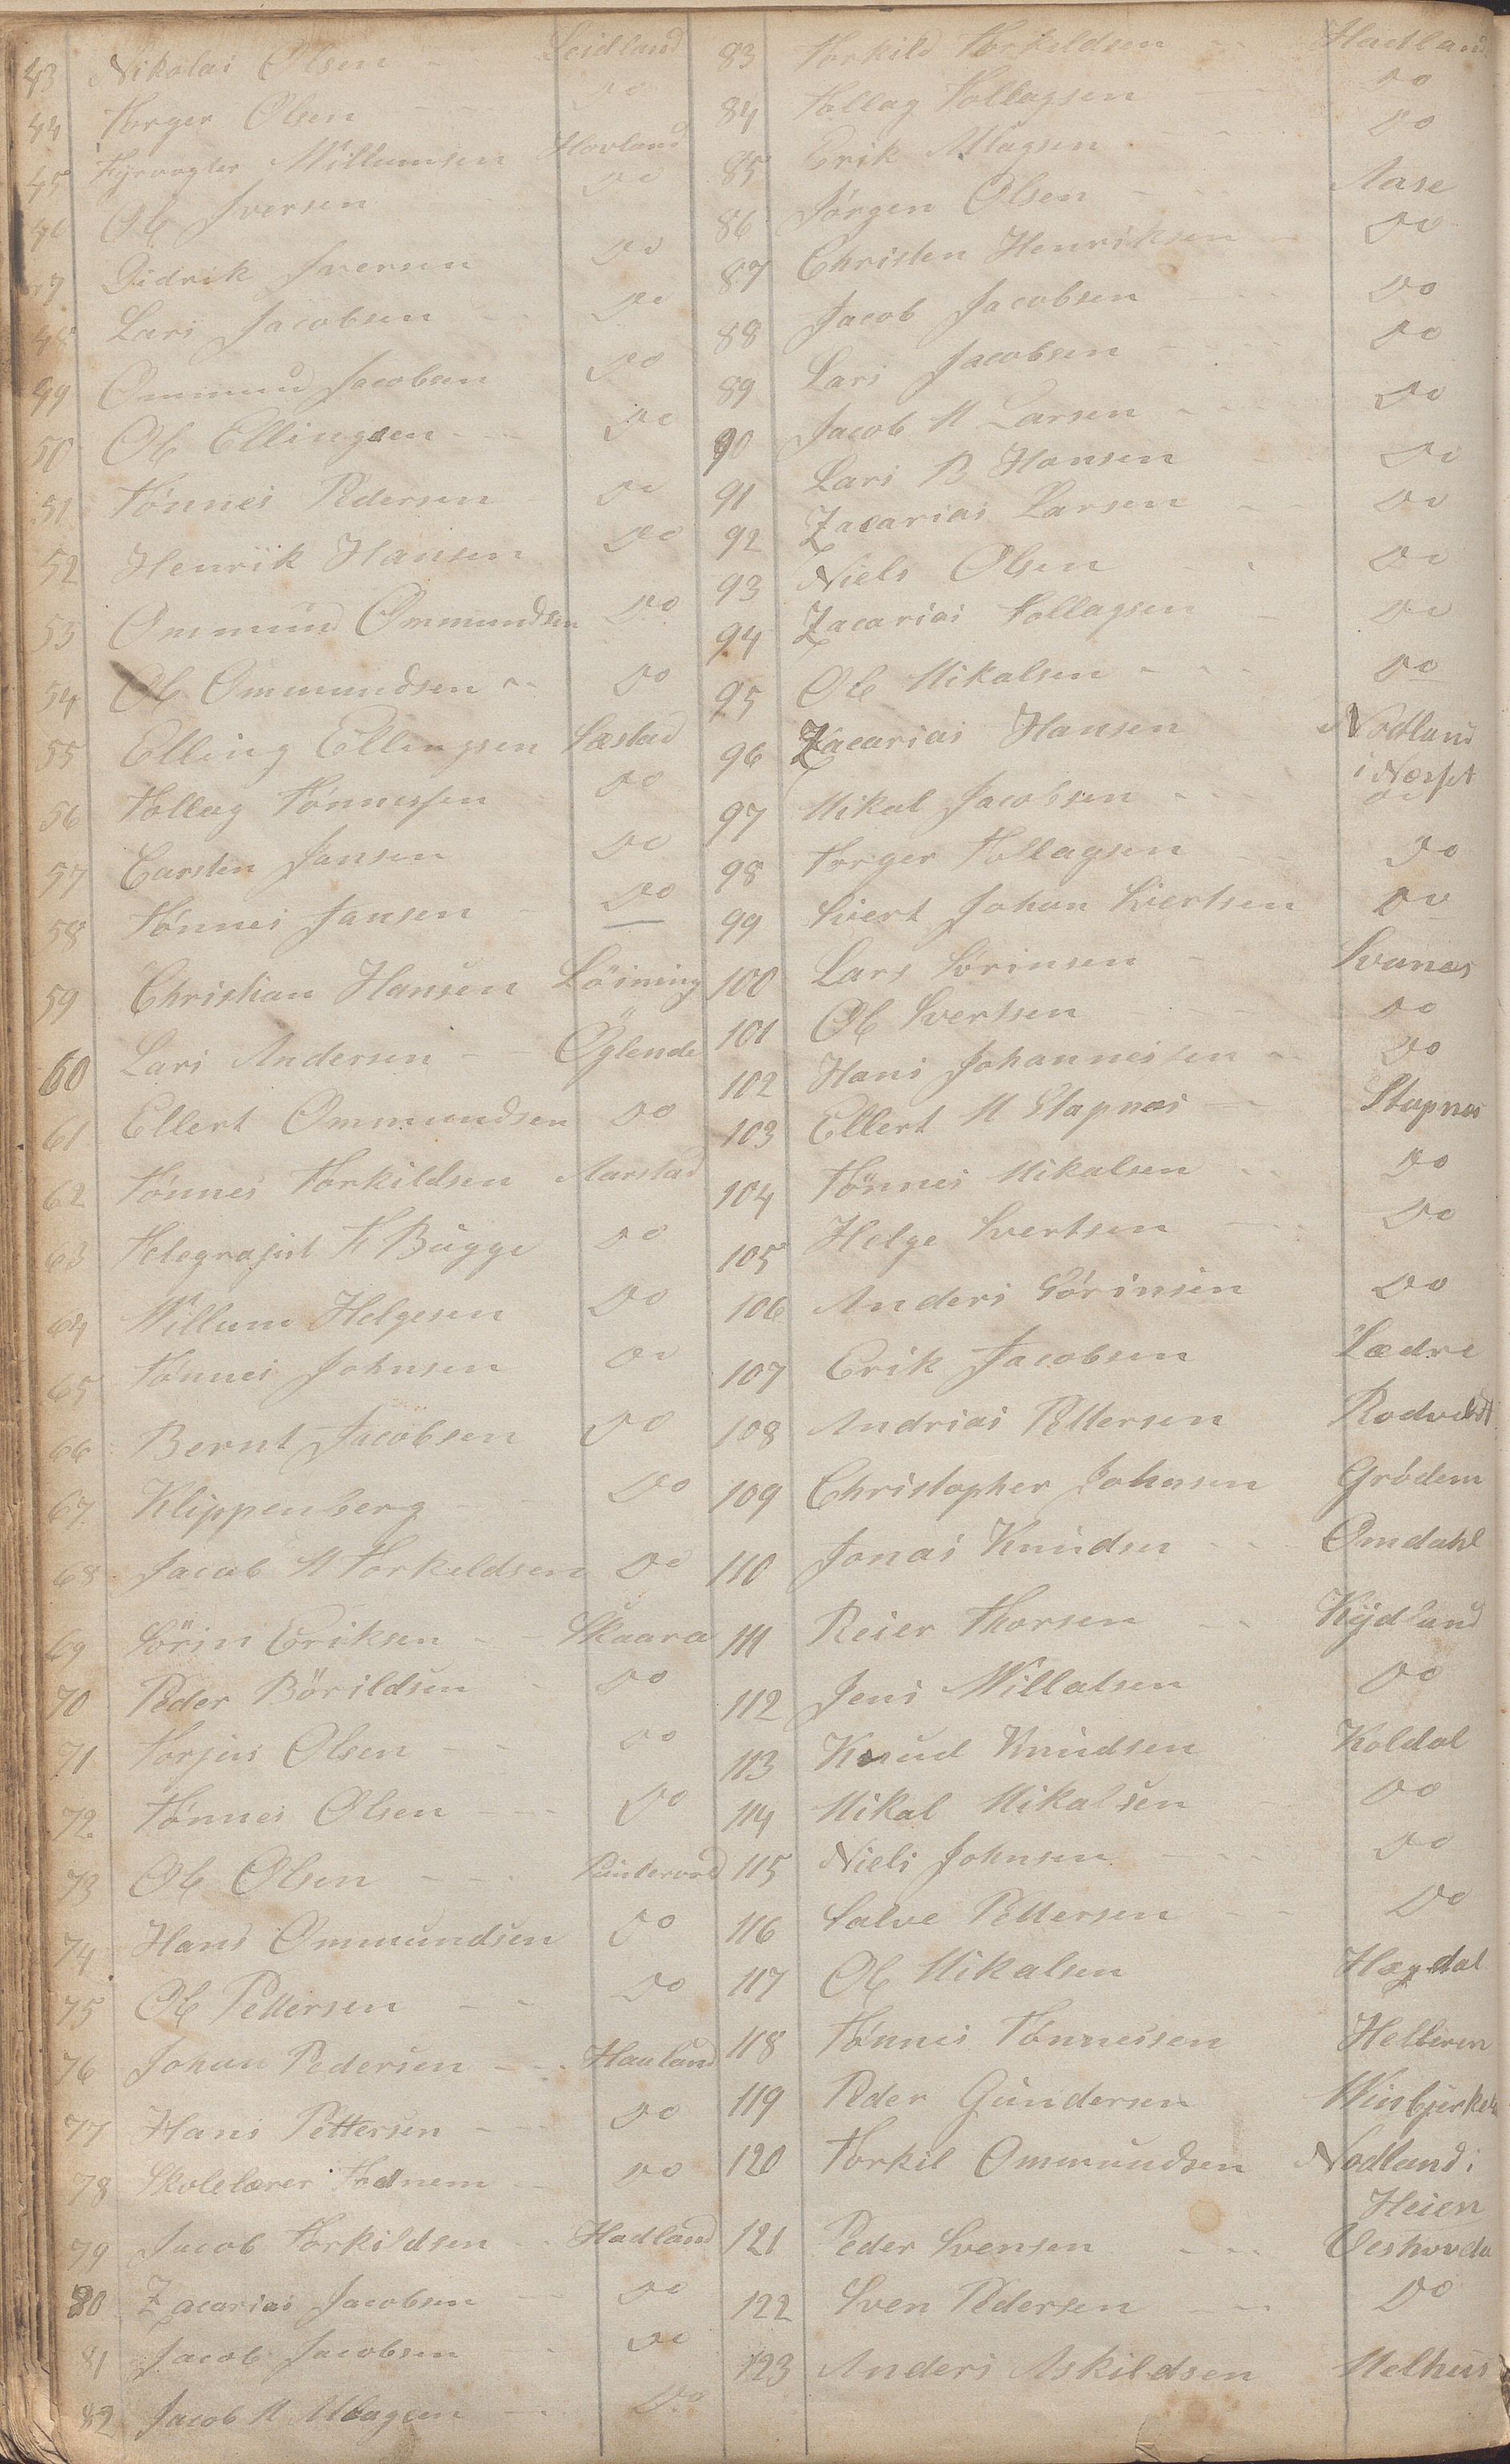 43 Nikolai Olsen - Leidland
44 Torger Olsen - - Do
45 Fyrvogter Villumsen Hovland
46 Ole Iversen Do
47 Didrik Iversen Do
48 Lars Jacobsen - Do
49 Ommund Jacobsen Do
50 Ole Ellingsen - - Do
51 Tönnes Pedersen - Do
52 Henrik Hansen Do
53 Ommund Ommundsen Do
54 Ole Ommundsen - - Do
55 Elling Ellingsen Sæstad
56 Tollag Tönnessen - Do
57 Carsten Jansen Do
58 Tönnes Jansen - Do
59 Christian Hansen Löining
60 Lars Andersen - Öglende
61 Ellert Ommundsen Do
62 Tönnes Torkildsen Aarstad
63 Telegrafist F Bugge Do
64 Villum Helgesen Do
65 Tönnes Johnsen Do
66 Bernt Jacobsen Do
67 Klippenberg - - Do
68 Jacob M Torkeldsen Do
69 Sörin Eriksen - - Skaara
70 Peder Börildsen - Do
71 Torjus Olsen - - Do
72 Tönnes Olsen - - Do
73 Ole Olsen - - -
74 Hans Ommundsen Do
75 Ole Pettersen - - Do
76 Johan Pedersen - - Hauland
77 Hans Pettersen - - Do
78 Skolelærer Fodnem - Do
79 Jacob Torkildsen - - Hadland
80 Zacarias Jacobsen - Do
81 Jacob Jacobsen - Do
82 Jacob M Ollagsen - Do
83 Torkild Torkeldsen - - Hadland
84 Tollag Tollagsen - Do
85 Erik Ollagsen - - Do
86 Jörgen Olsen - - Aase
87 Christen Henriksen - Do
88 Jacob Jacobsen - - Do
89 Lars Jacobsen - - - Do
90 Jacob M Larsen - - - Do
91 Lars B Hansen - - Do
92 Zacarias Larsen - - Do
93 Niels Olsen - - Do
94 Zacarias Tollagsen - Do
95 Ole Mikalsen - - - Do
96 Zacarias Hansen Nodland
i Næsset
97 Mikal Jacobsen - - - Do
98 Torger Tollagsen - - Do
99 Sivert Johan Sivertsen Do
100 Lars Sörinsen - Svanes
101 Ole Sivertsen - - - Do
102 Hans Johannessen - - Do
103 Ellert M Stapnæs - Stapnes
104 Tönnes Mikalsen - - Do
105 Helge Sivertsen - - Do
106 Anders Sörinsen Do
107 Erik Jacobsen Lædre
108 Andrias Pettersen Rodvelt
109 Christopher Johnsen Grödem
110 Jonas Knudsen - - Omdahl
111 Reier Thorsen - - Kydland
112 Jens Villatsen Do
113 Knud Knudsen Koldal
114 Mikal Mikalsen - Do
115 Niels Johnsen - - - Do
116 Salve Pettersen - - Do
117 Ole Mikalsen Hægdal
118 Tönnes Tönnessen Helleren
119 Peder Gundersen
120 Torkil Ommundsen Nodland i
Heien
121 Peder Svensen - - - Veshovda
122 Sven Pedersen - - Do
123 Anders Askildsen Melhus